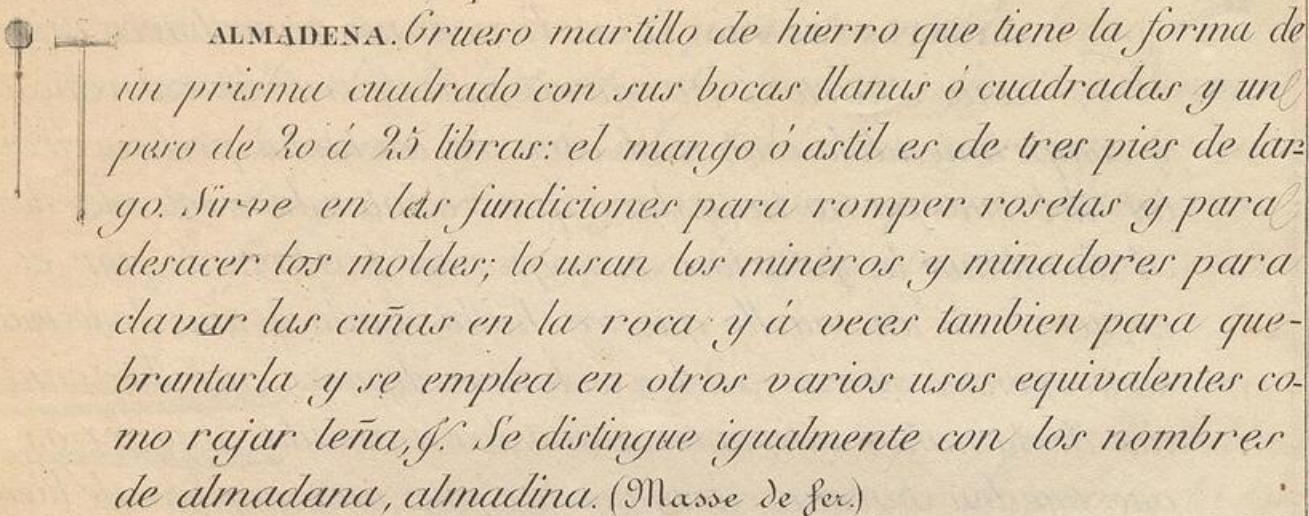 ALMADENA. Grueso martillo de hierro que tiene la forma de
un prisma cuadrado con sus bocas llanas ó cuadradas y un
peso de 20 á 25 libras: el mango ó astil es de tres pies de lar=
go. Sirve en las fundiciones para romper rosetas y para
desacer los moldes; lo usan los mineros y minadores para
clavar las cuñas en la roca y á veces tambien para que-
brantarla y se emplea en otros varios usos equivalentes co-
mo rajar leña, &. Se distingue igualmente con los nombres
de almadana, almadina. (Masse de fer.)